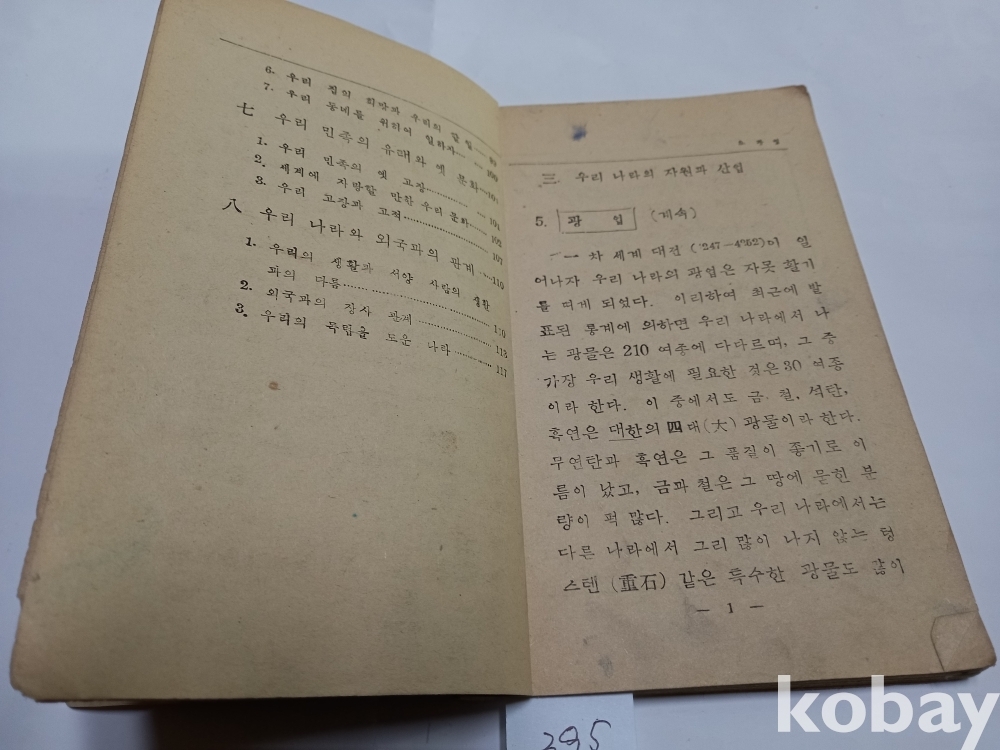 6. 우리 집의 희망과 우리의 할 일 99
7. 우리 동네를 위하여 일하자 100
七 우리 민족의 유래와 옛 문화 101
1. 우리 민족의 옛 고장 101
2. 세계에 자랑할 만한 우리 문화 102
3. 우리 고장과 고적 107
八 우리 나라와 외국과의 관계 110
1. 우리의 생활과 서양 사람의 생활
과의 다름 110
2. 외국과의 장사 관계 113
3. 우리의 독립을 도운 나라 117
三 우리 나라의 자원과 산업
5. 광 업 (계속)
一차 세계 대전 이 일
어나자 우리 나라의 광업은 자못 활기
를 띠게 되었다. 이리하여 최근에 발
표된 통계에 의하면 우리 나라에서 나
는 광물은 210 여종에 다다르며, 그 중
가장 우리 생활에 필요한 것은 30 여종
이라 한다. 이 중에서도 금. 철, 석탄,
흑연은 대한의 四대(大) 광물이라 한다.
무연탄과 흑연은 그 품질이 좋기로 이
름이 났고, 금과 철은 그 땅에 묻힌 분
량이 퍽 많다. 그리고 우리 나라에서는
다른 나라에서 그리 많이 나지 않는 텅
스텐 (重石) 같은 특수한 광물도 많이
— 1 —
295
kobay